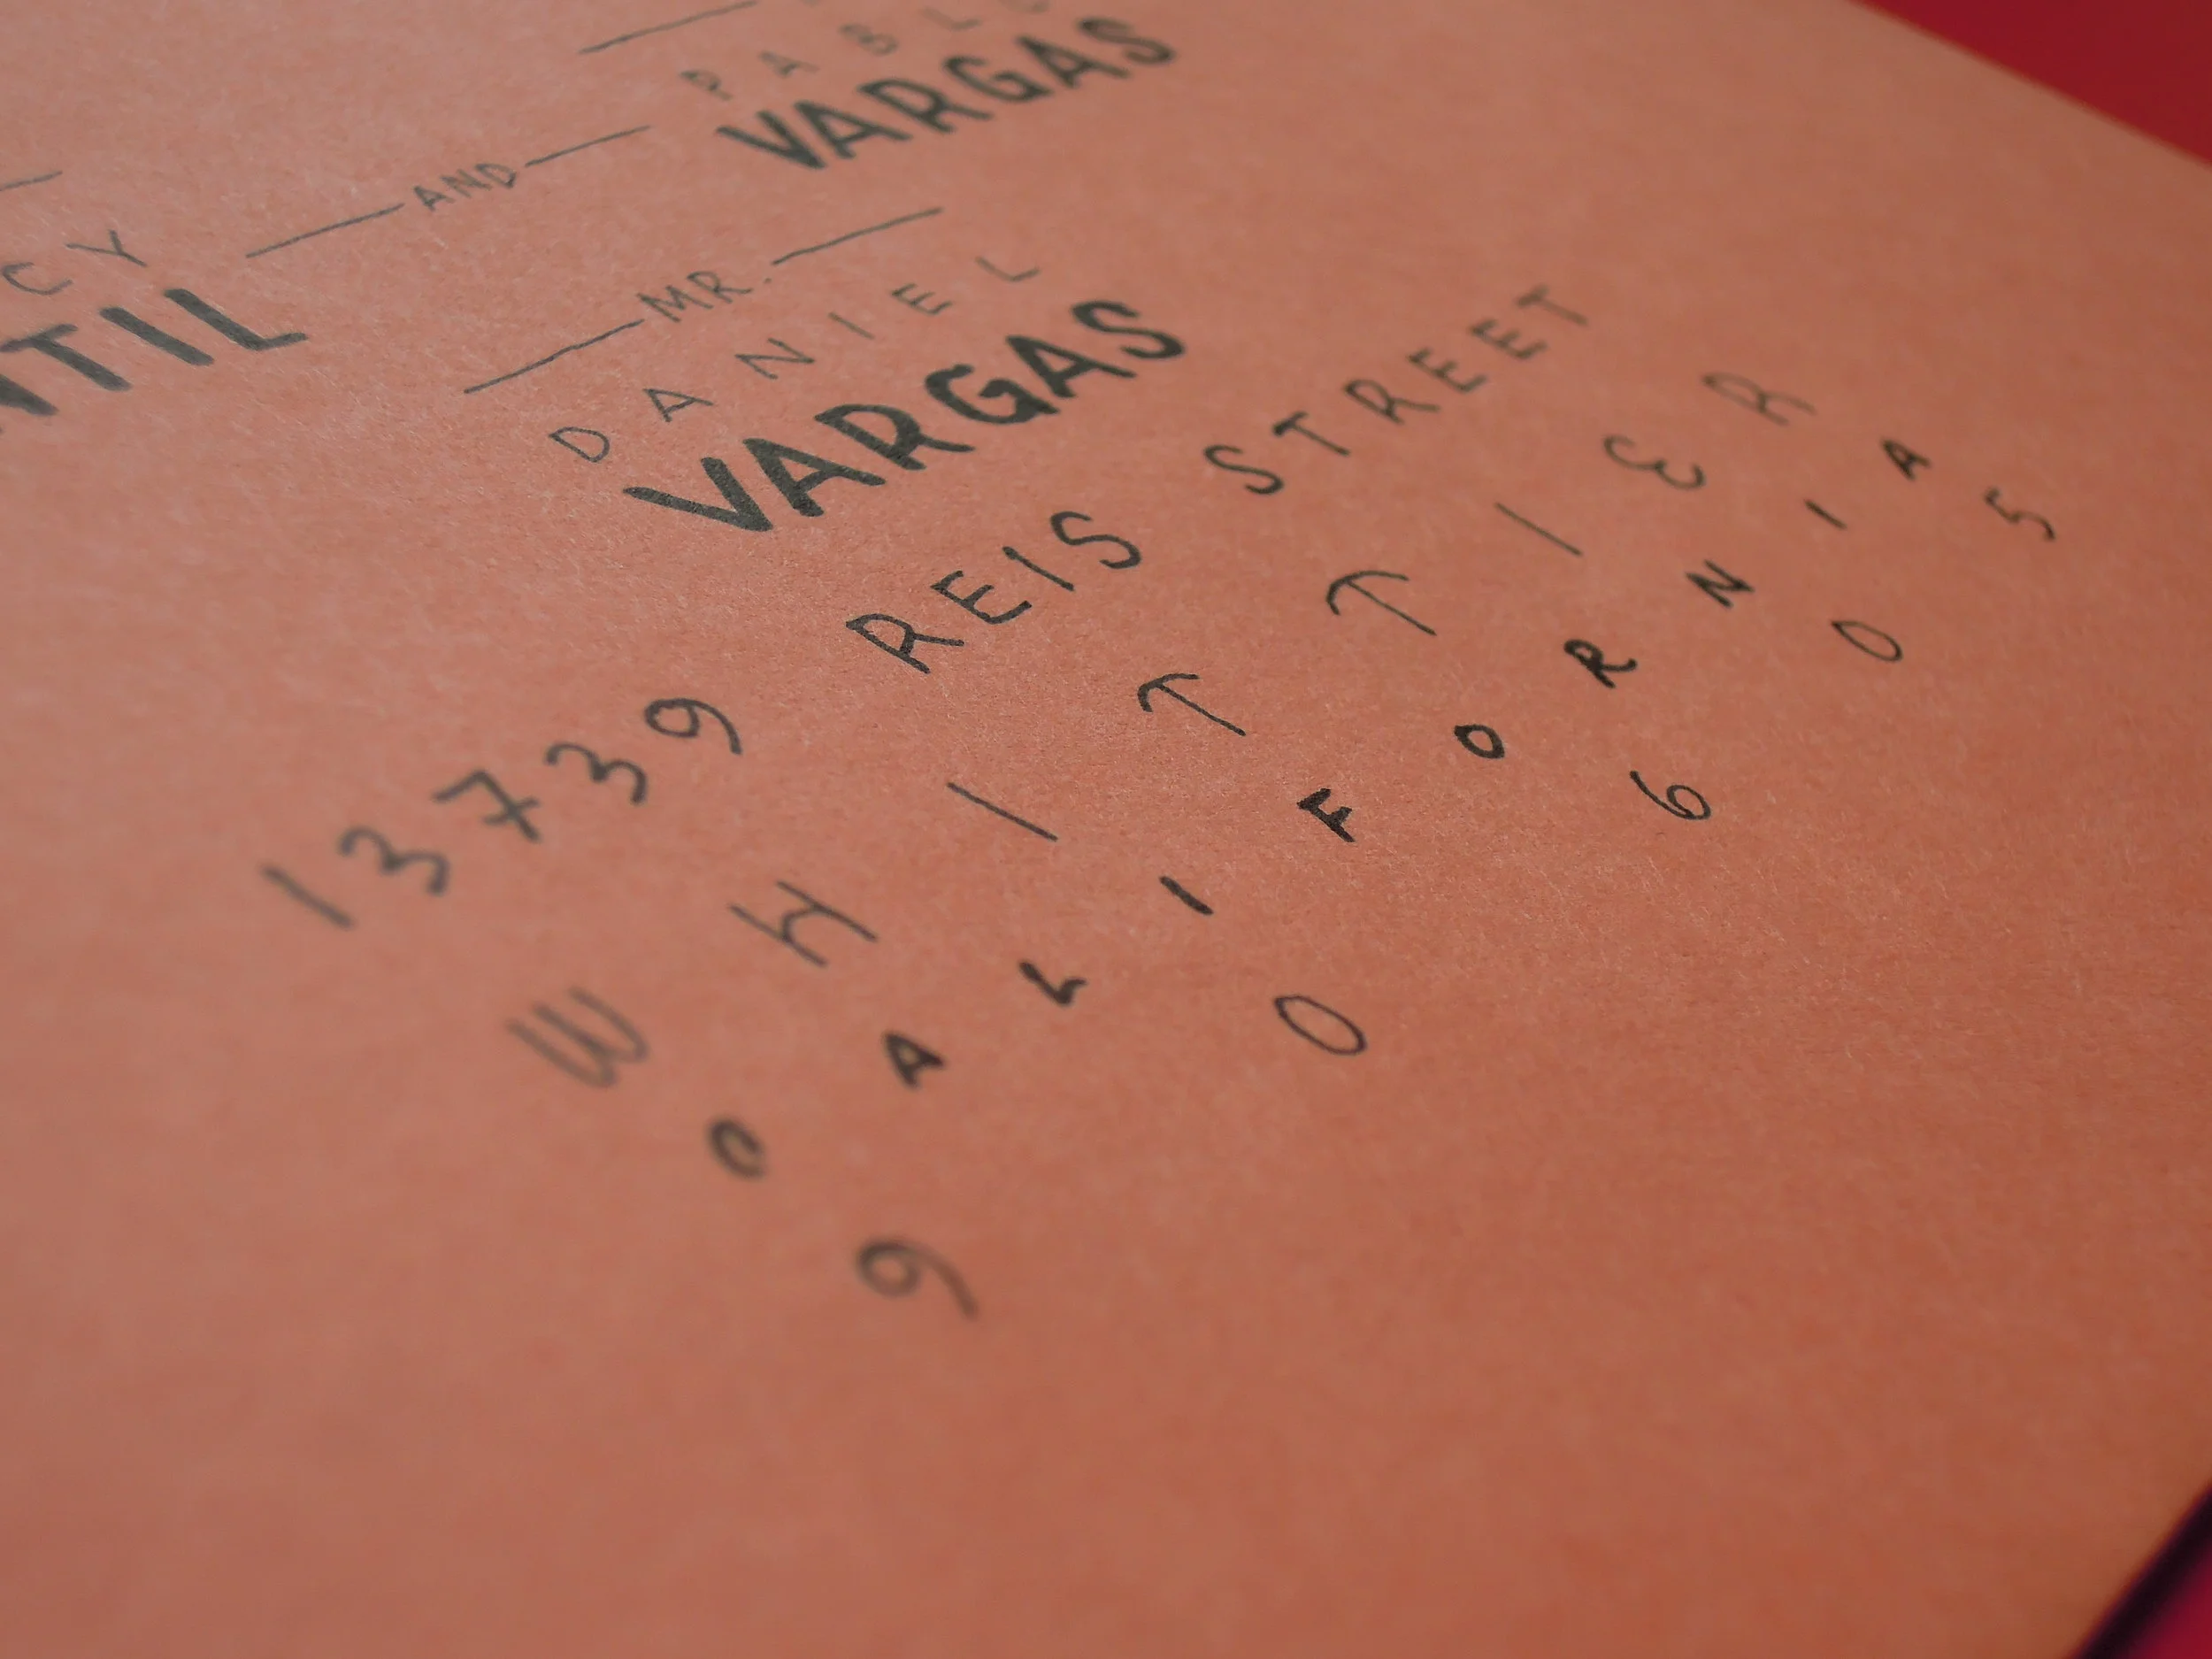 PABLO
VARGAS
CY
AND
NTIL
MR.
DANIEL
VARGAS
13739 REIS STREET
WHITTIER
CALIFORNIA
90605